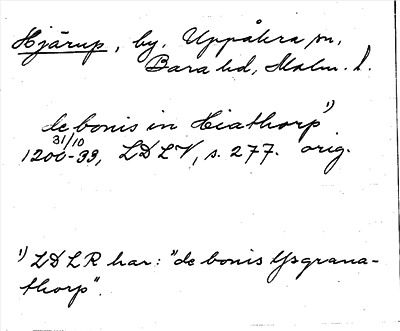 Hjärup, by, Uppåkra sn,
Bara hd, Malm. l.
de bonis in Hiathorp 1)
31/10
1200-99, LDLV, s. 277. orig.
1) LDLR har: "de bonis Ysgrana-
thorp".